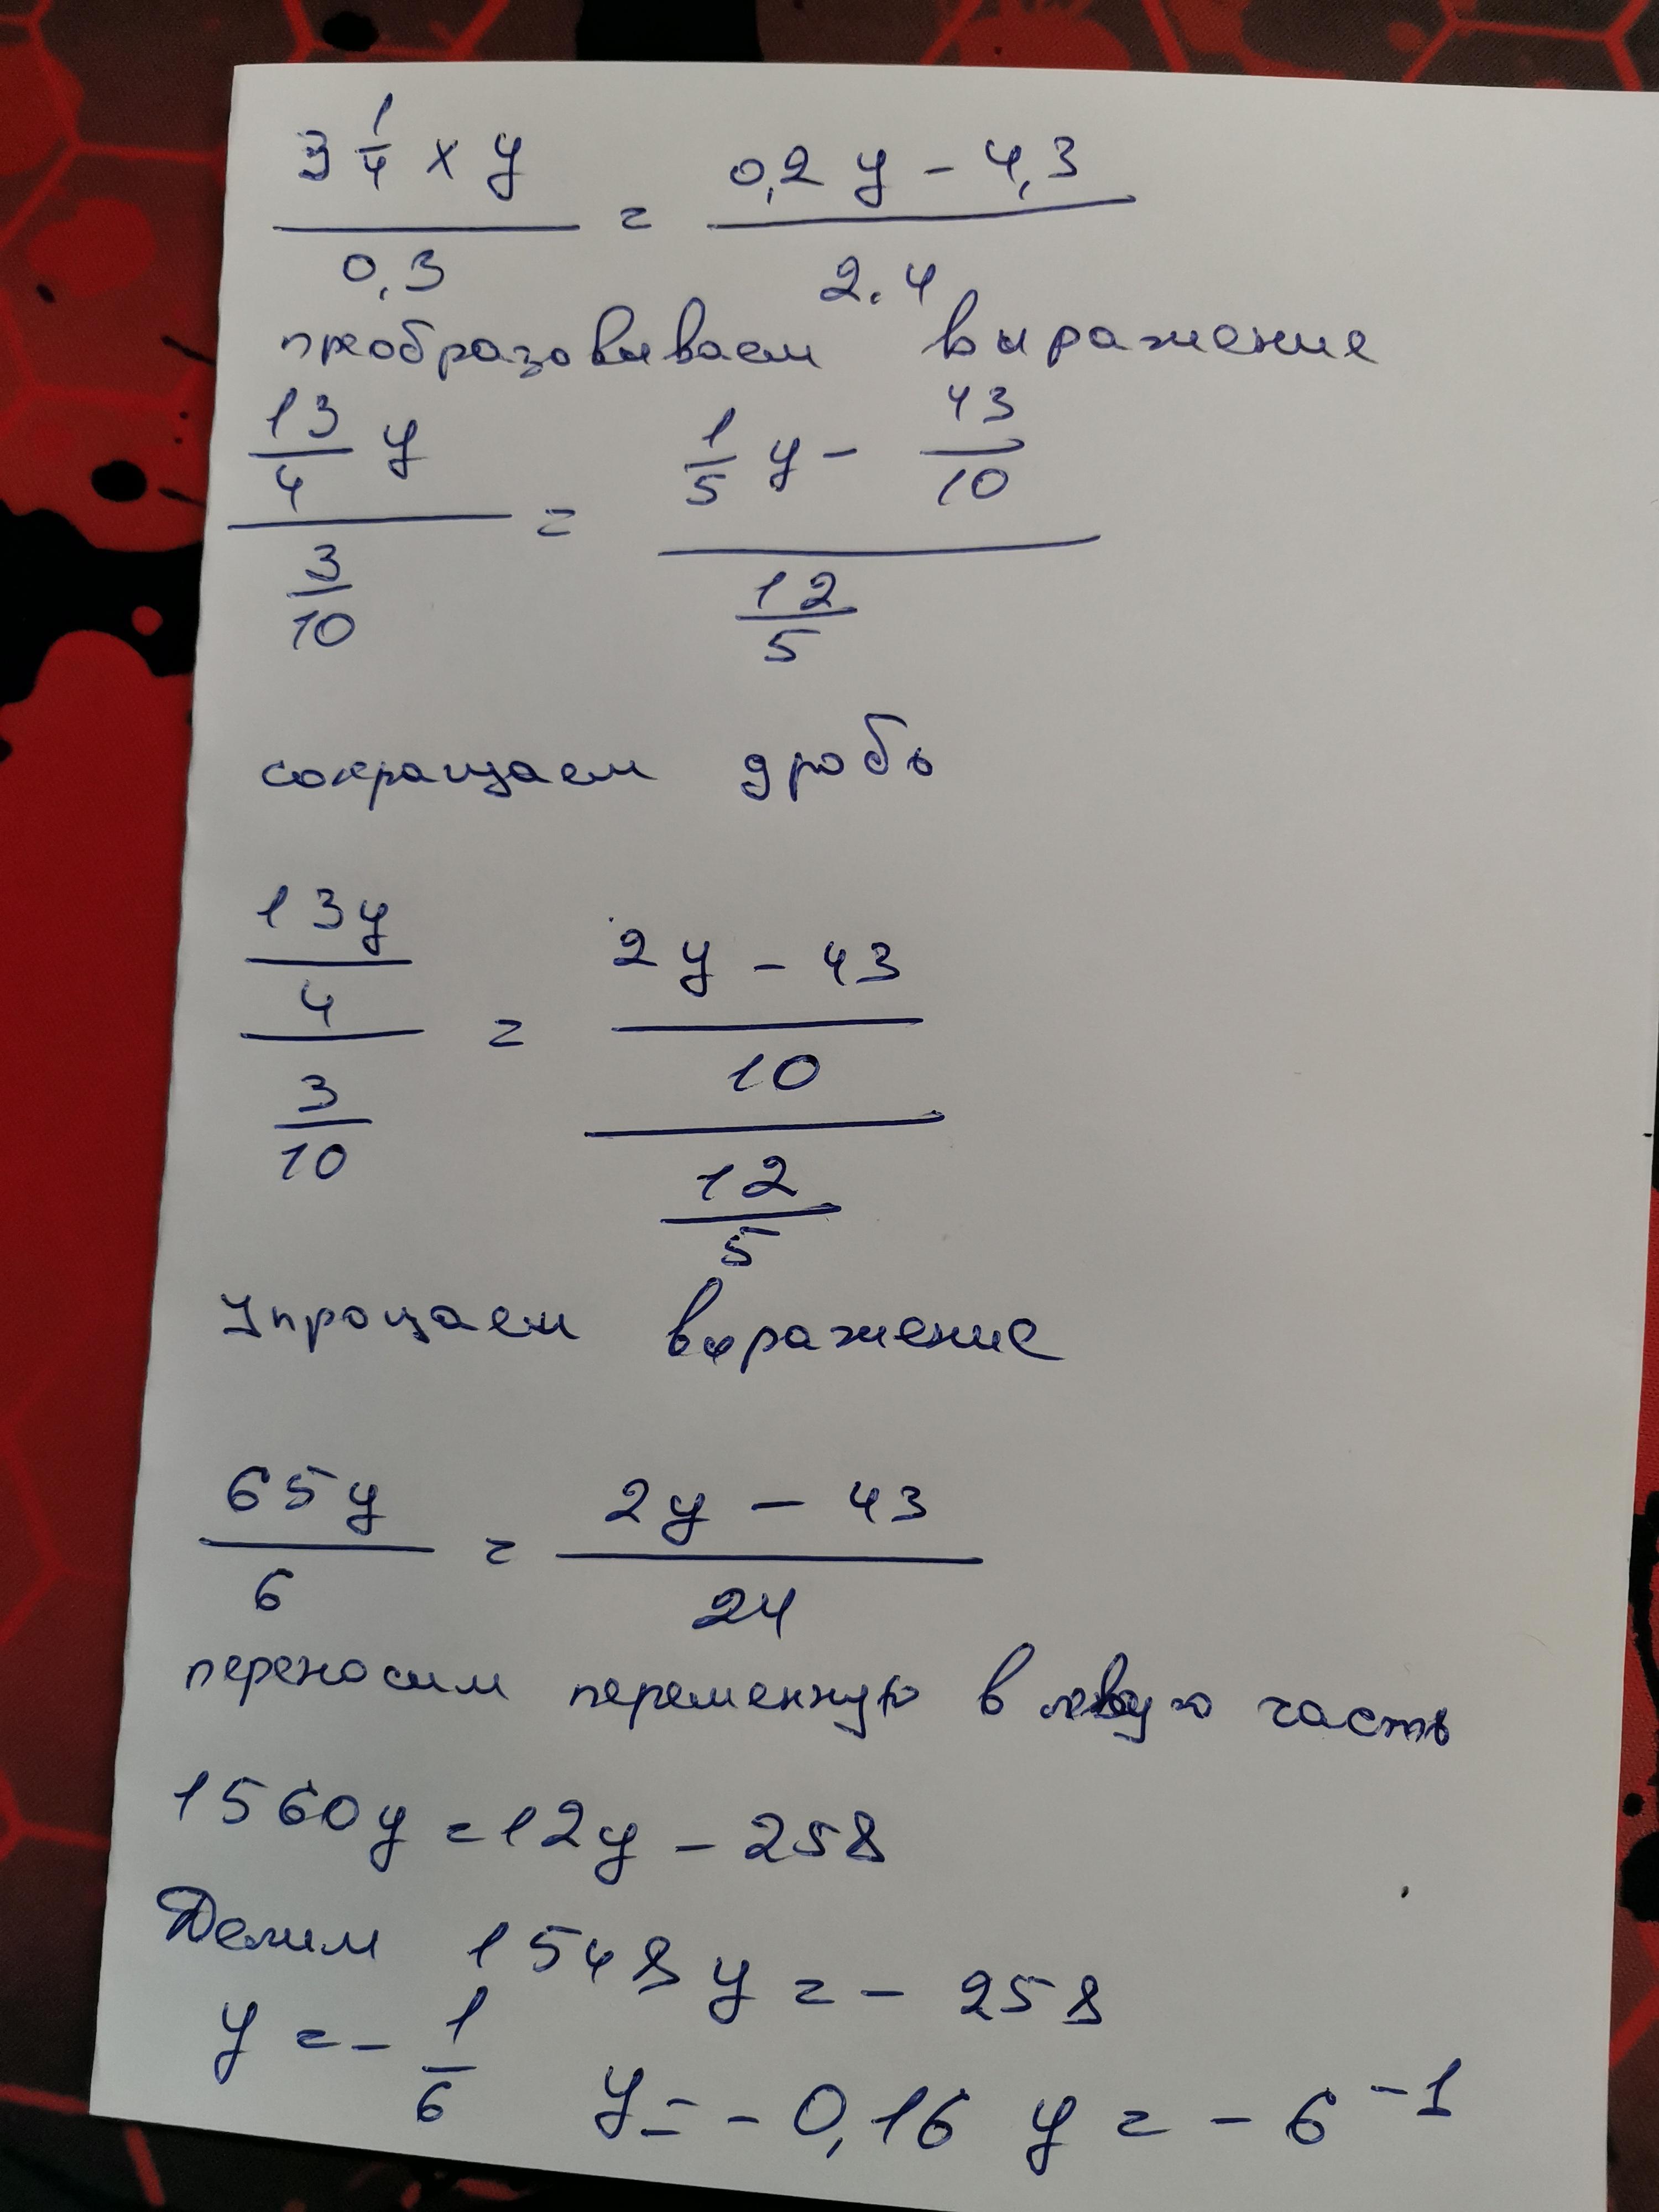 3 1/4 × y / 0,3 = 0,2 y - 4,3 / 2.4
преобразовываем выражение
13/4 y / 3/10 = 1/5 y - 43/10 / 12/5
сокращаем дробь
13y/4 / 3/10 = 2y - 43/10 / 12/5
Упрощаем выражение
65y/6 = 2y - 43/24
переносим переменную в левую часть
1560y = 12y - 258
Делим 1548y = - 258
y = - 1/6 y = - 0,16 y = - 6^-1